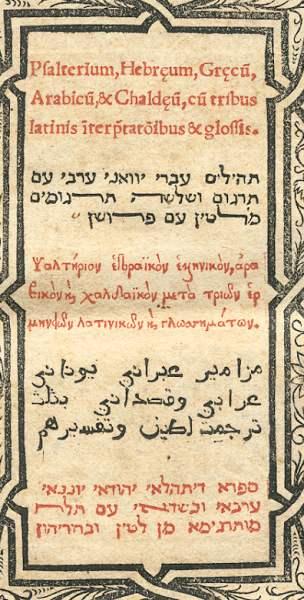 Psalterium, Hebręum, Gręcū,
Arabicū, & Chaldęū, cū tribus
latinis īterp̄tatōibus & glossis.
תהילים עברי יוואני ערבי עם
תרגום ושלשה תרגומים
מלטין עם פרושן
Ψαλτήριον ἑβραϊκὸν ἑλληνικὸν, ἀρα
βικὸν ϗ χαλδαϊκὸν μετὰ τριῶν ἑρ
μηνειῶν λατινικῶν ϗ γλωσσημάτων.
مزامير عبراني يوناني
عرابي وقصداني بثلث
ترجمت لطين وتفسيرهم
ספרא דיתהלאי יהודאי יוננאי
ערבאי וכשדאי עם תלת
מותרגימא מן לטין ובהריהון